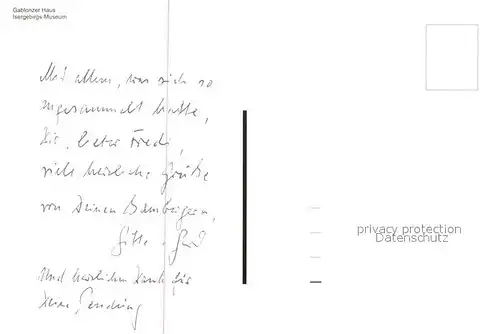 Gablonzer Haus
Isergebirgs-Museum
Mit allem, was sich so
angesammelt hatte,
Dir, lieber Fredi,
viele herzliche Grüße
von Deinen Bambergern,
Gitte
Und herzlichen Dank für
Deine Sendung
privacy protection
Datenschutz